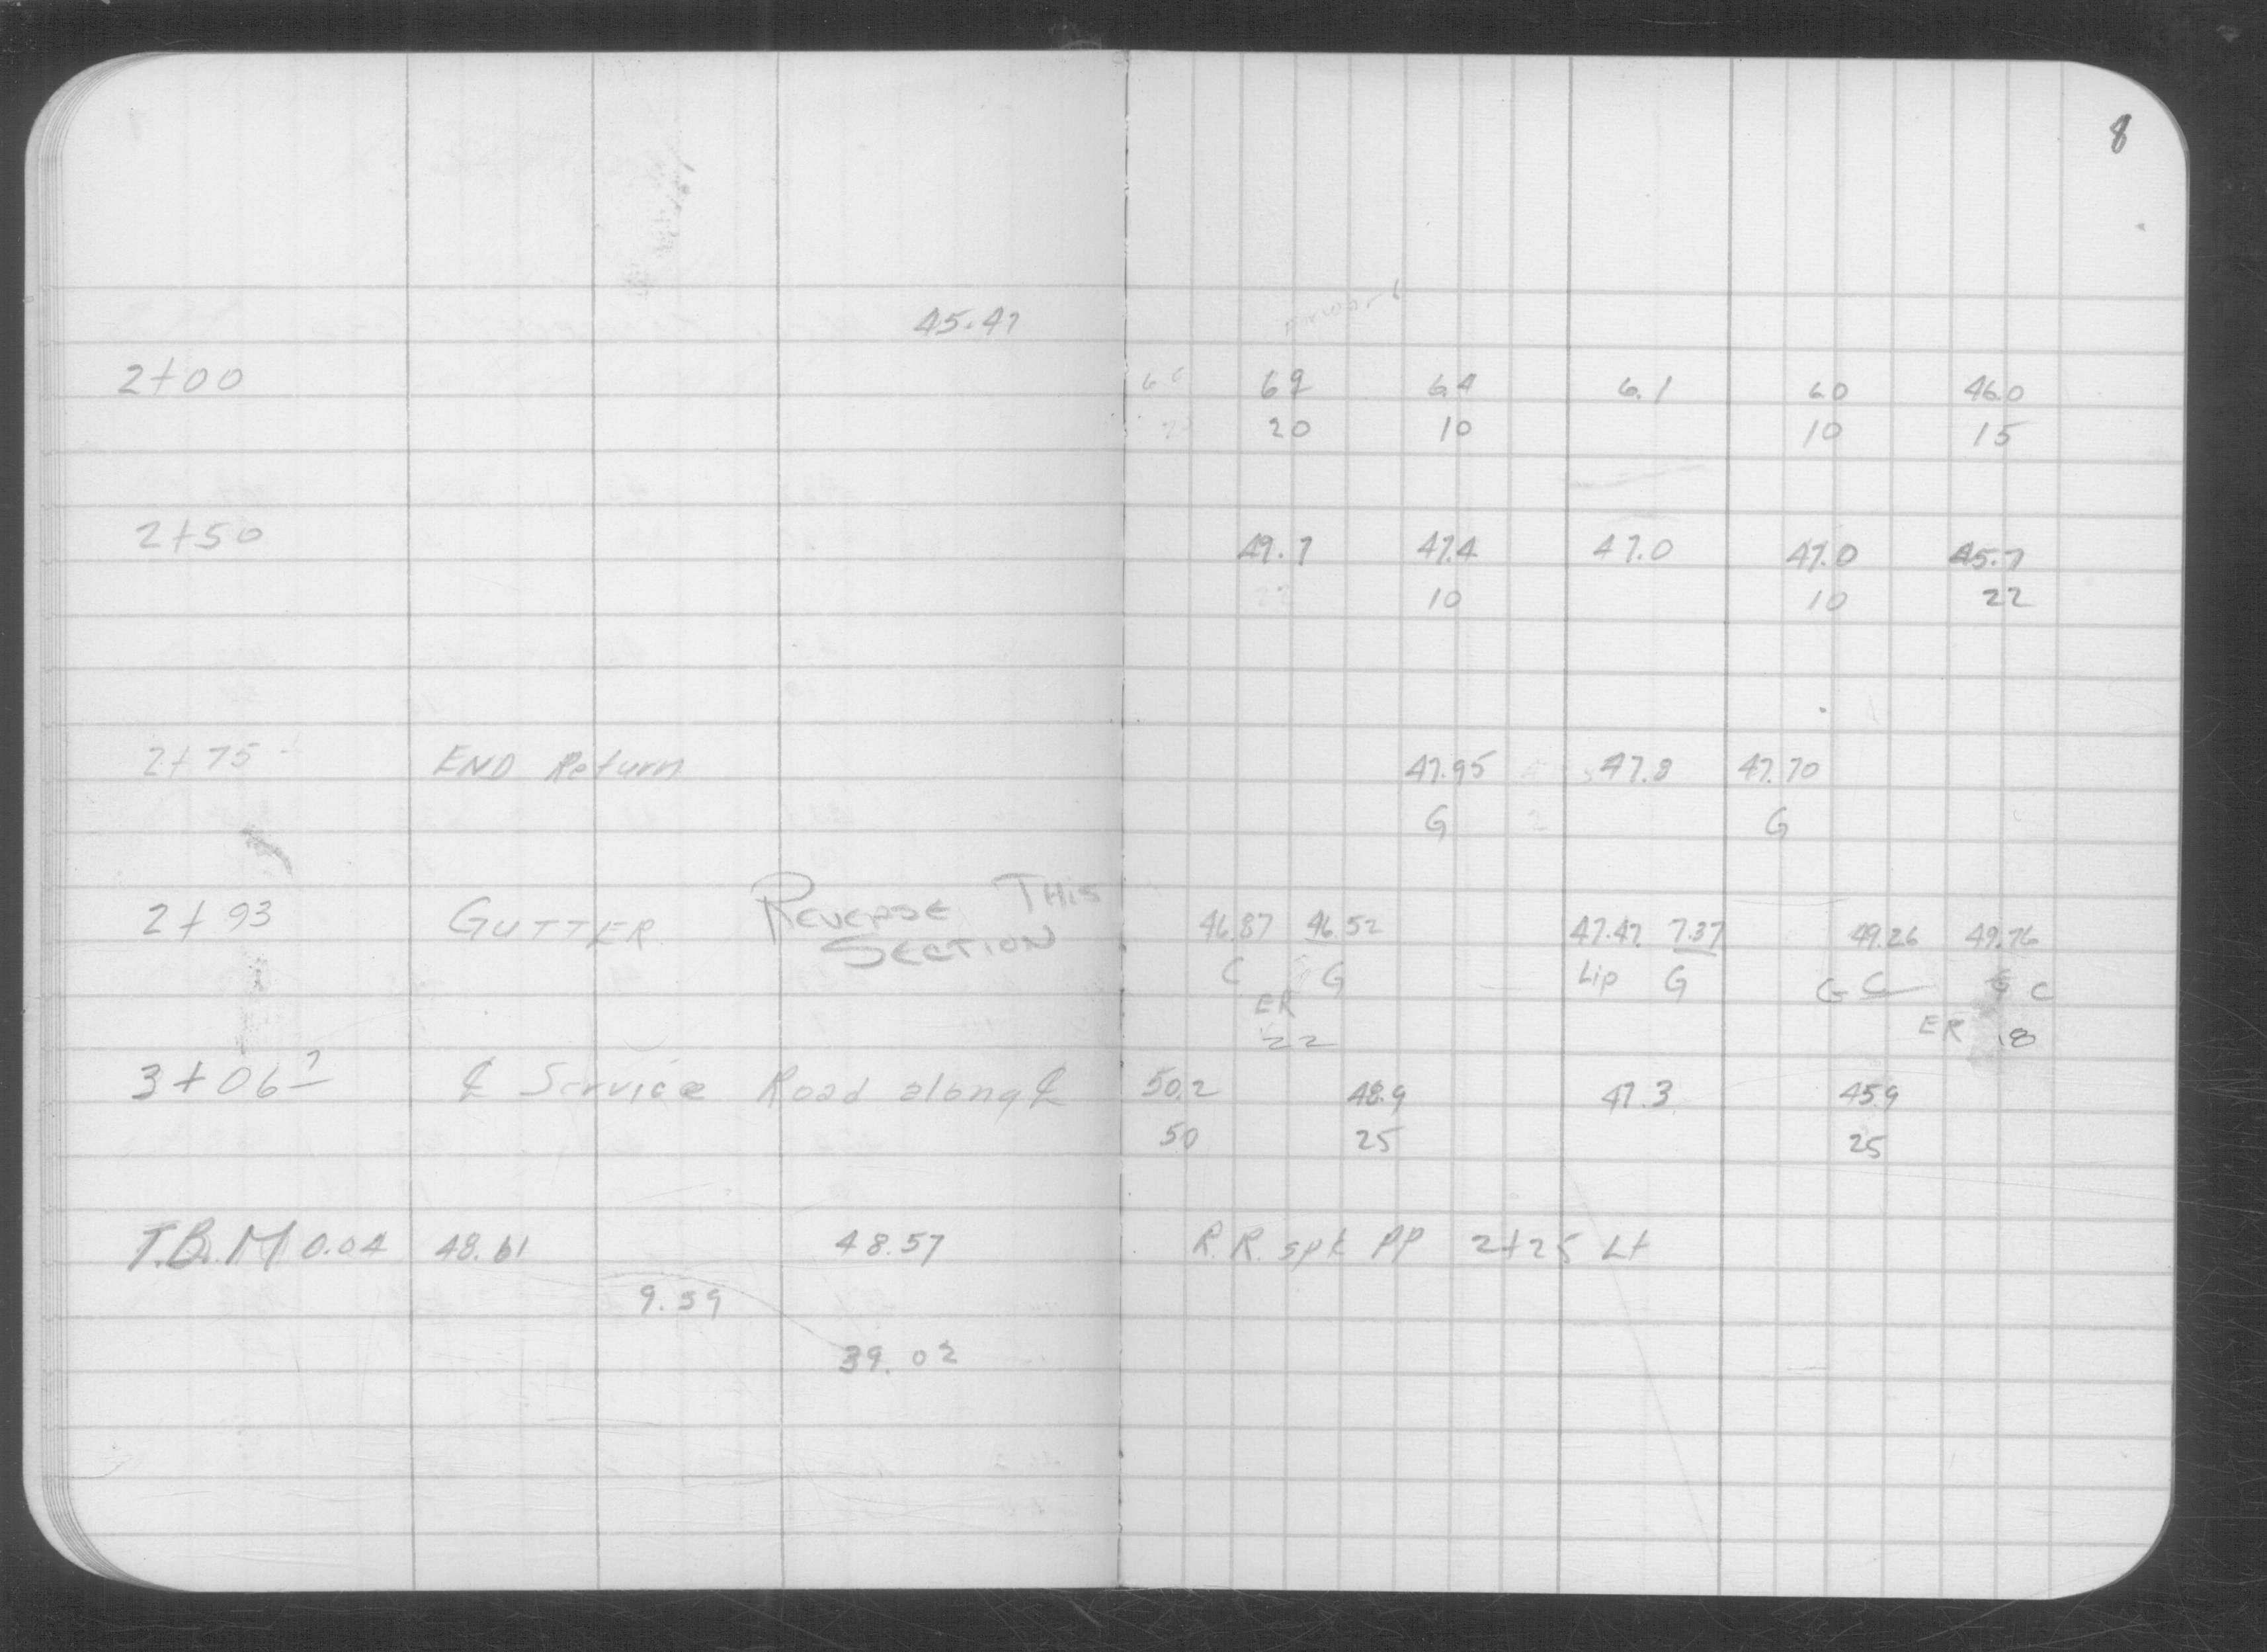 8
45.47
2+00 69 6.4 6.1 6.0 46.0
20 10 10 15
2+50 49.7 47.4 47.0 47.0 45.7
22 10 10 22
2+75 END Return 47.95 47.8 47.70
G G
2+93 GUTTER REVERSE THIS SECTION 46.87 46.52 47.47 7.37 49.26 49.76
C G Lip G G C G C
ER ER 18
22
3+06 ℄ Service Road along ℄ 50.2 48.9 47.3 45.9
50 25 25
T.B.M 0.04 48.61 48.57 R.R. spk PP 2+25 Lt
9.59
39.02